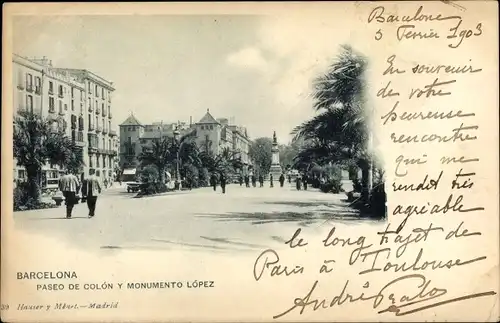 Barcelone
5 Février 1903
En souvenir
de votre
heureuse
rencontre
qui me
rendit très
agréable
le long trajet de
Paris à Toulouse
André
BARCELONA
PASEO DE COLÓN Y MONUMENTO LÓPEZ
39 Hauser y Menet.—Madrid